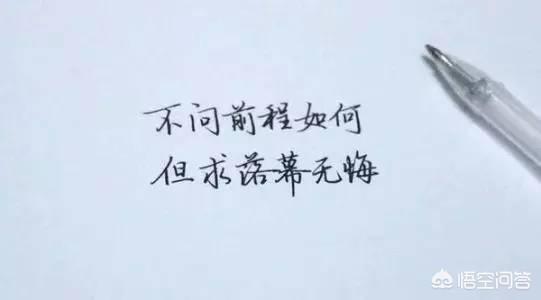 不问前程如何
但求落幕无悔
悟空问答